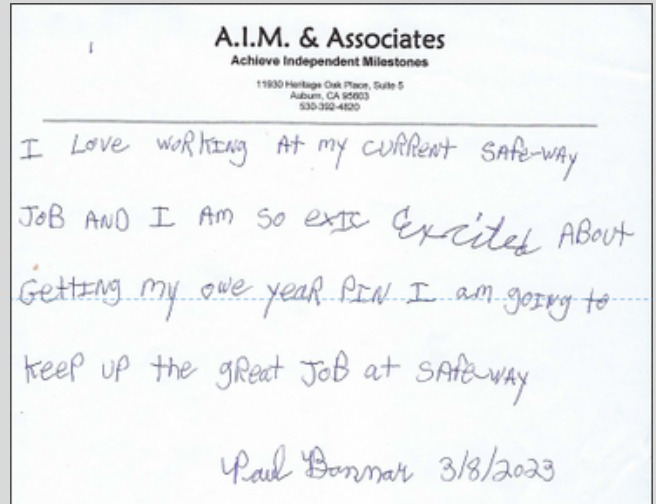 A.I.M. & Associates
Achieve Independent Milestones
11930 Heritage Oak Place, Suite 5
Auburn, CA 95603
530-392-4820
I Love woRKING At my cURReNt SAfe-wAy
JoB AND I Am So exIc Excited ABout
GettING my owe yeaR PIN I am goING to
keep up the gReat JoB at SAfe-wAy
Paul Bannar 3/8/2023